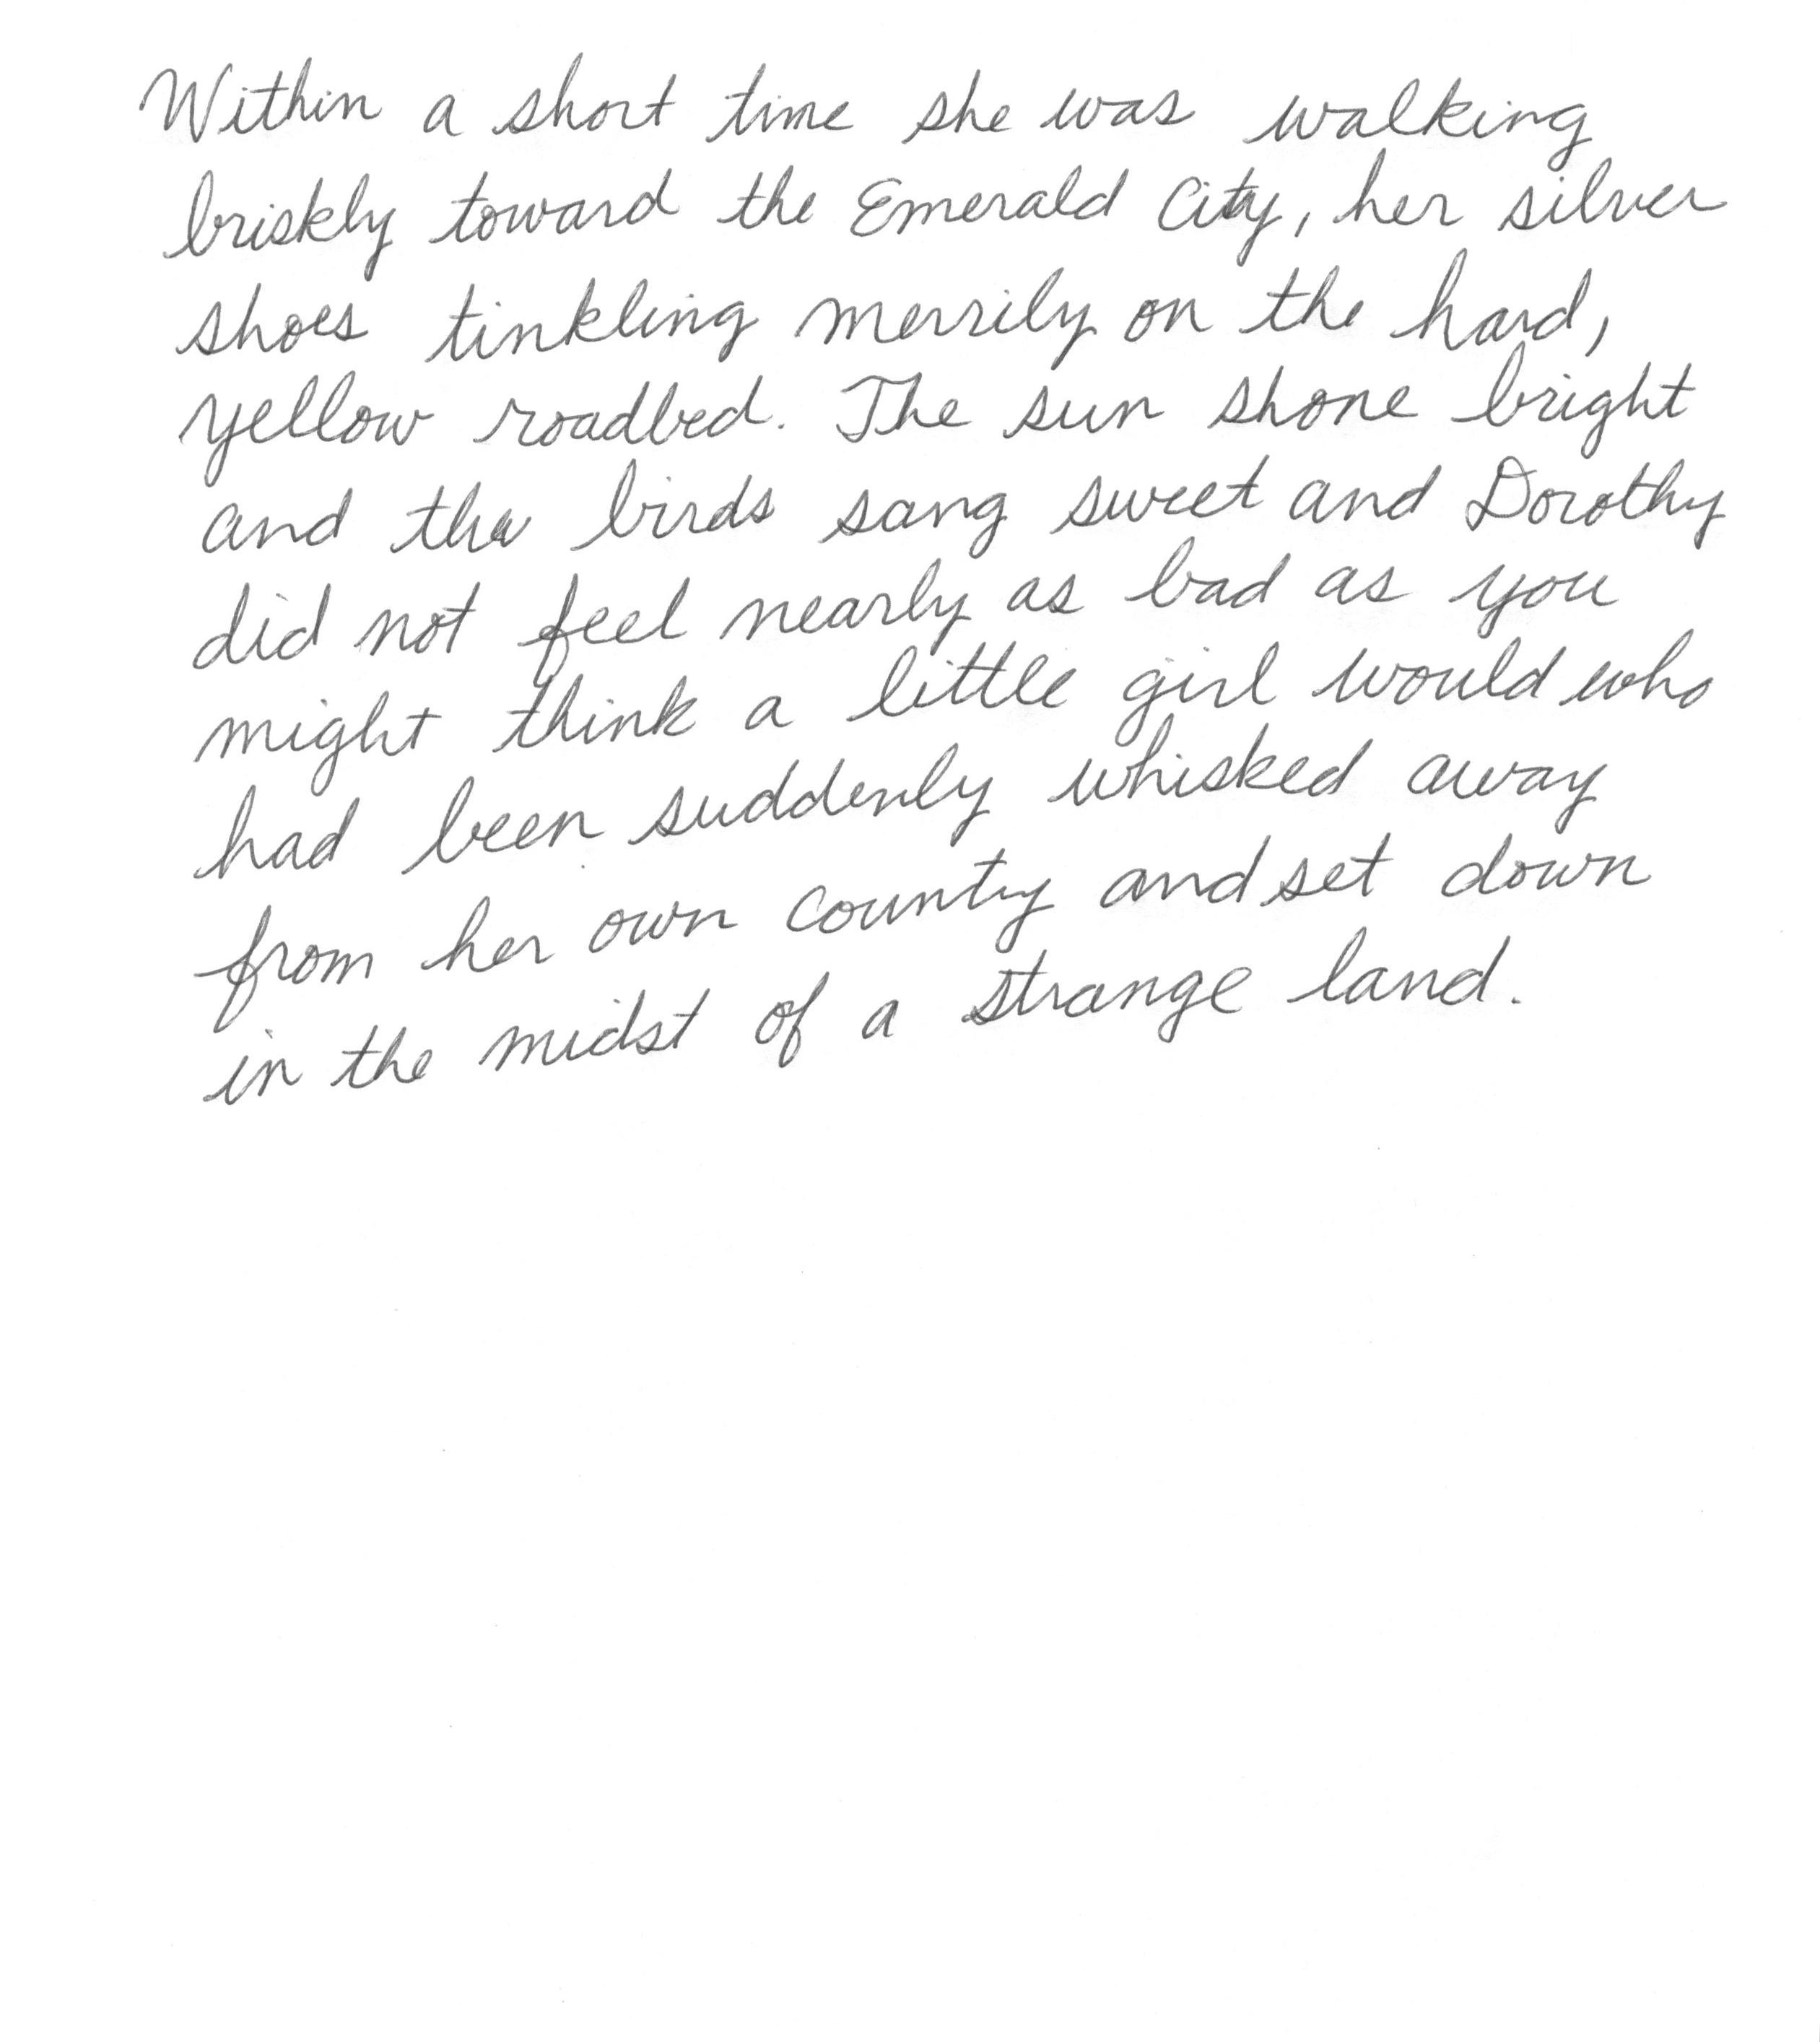 Within a short time she was walking
briskly toward the Emerald City, her silver
shoes tinkling merrily on the hard,
yellow roadbed. The sun shone bright
and the birds sang sweet and Dorothy
did not feel nearly as bad as you
might think a little girl would who
had been suddenly whisked away
from her own county and set down
in the midst of a strange land.